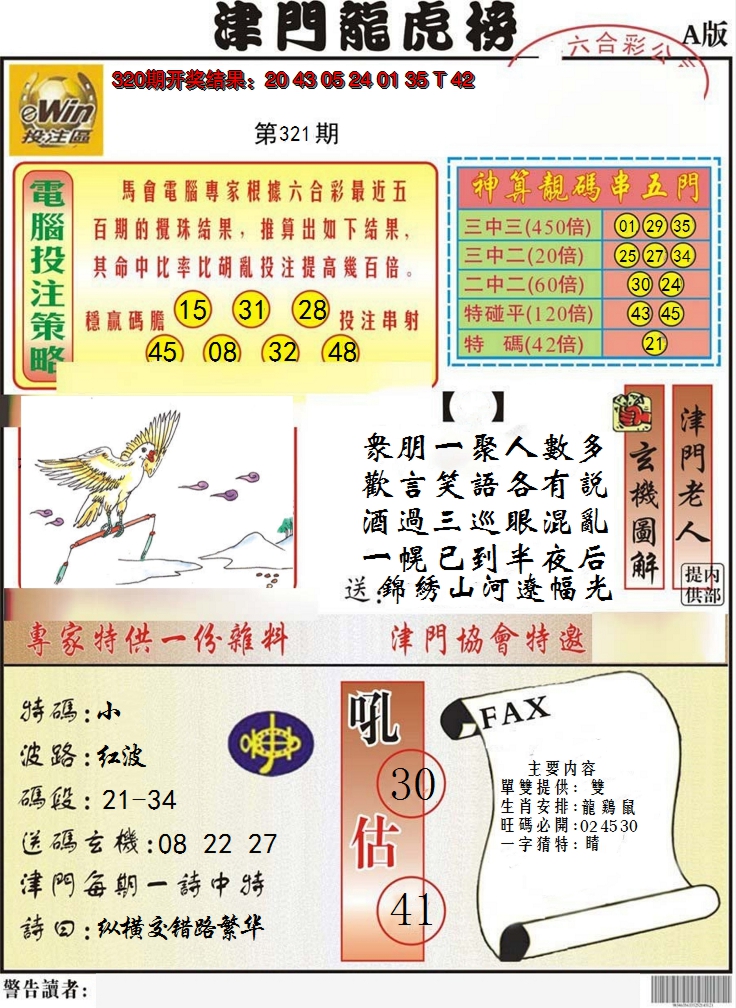 津門龍虎榜
A版
六合彩公
320期开奖结果：20 43 05 24 01 35 T 42
eWin
投注區
第321期
電腦投注策略
馬會電腦專家根據六合彩最近五
百期的攪珠结果，推算出如下结果，
其命中比率比胡亂投注提高幾百倍。
穩赢碼膽 15 31 28 投注串射
45 08 32 48
神算靚碼串五門
三中三(450倍) 01 29 35
三中二(20倍) 25 27 34
二中二(60倍) 30 24
特碰平(120倍) 43 45
特 碼(42倍) 21
【 】
衆朋一聚人數多
歡言笑語各有説
酒過三巡眼混亂
一幌已到半夜后
送：錦綉山河遼幅光
玄機圖解
津門老人
内部提供
專家特供一份雜料
津門協會特邀
特碼：小
波路：红波
碼段：21-34
送碼玄機：08 22 27
津門每期一詩中特
詩曰：纵横交错路繁华
吼
30
估
41
FAX
主要内容
單雙提供：雙
生肖安排：龍鷄鼠
旺碼必開：02 45 30
一字猜特：晴
警告讀者：